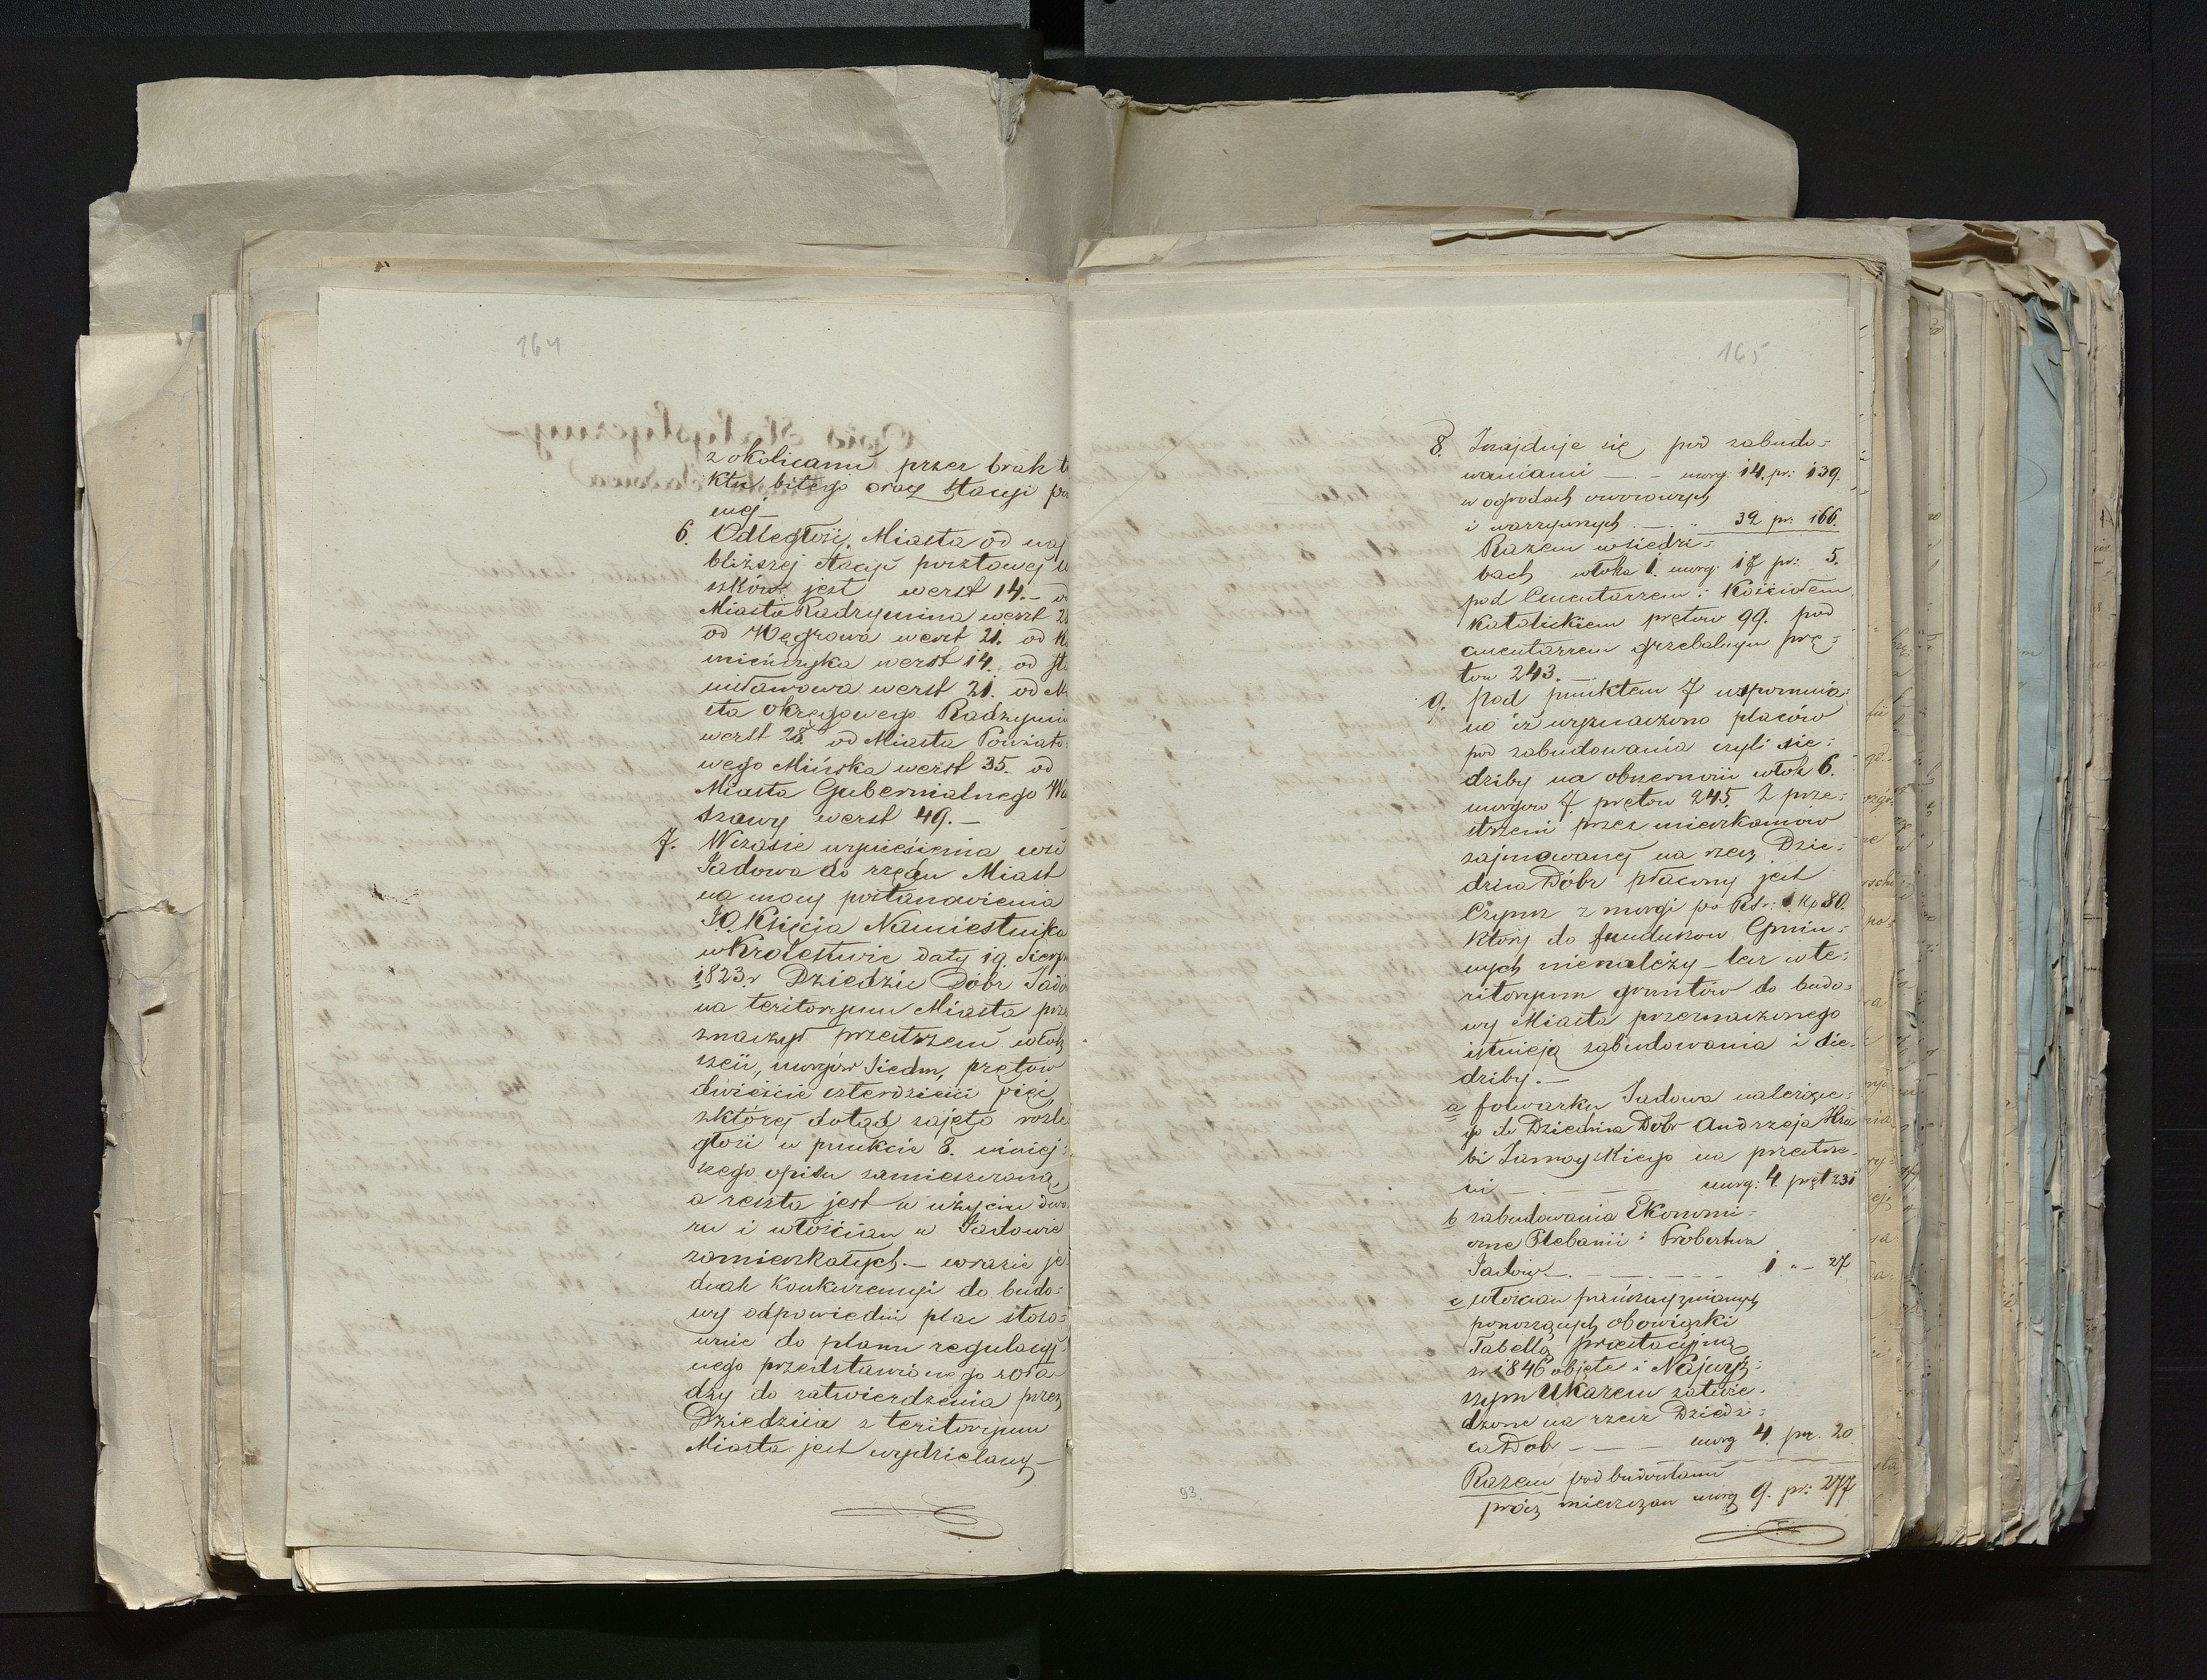 164
z okolicami przez brak t
ktu bitego oraz stacyi po
wej
6. Odległość Miasta od naj
bliższej stacyi pocztowej
szków jest werst 14. – od
Miasta Radzymina werst 28
od Węgrowa werst 21. od Ka
mieńczyka werst 14. od Sta
nisławowa werst 21. od Mi
sta Okręgowego Radzymin
werst 28. od Miasta Powiato=
wego Mińska werst 35. od
Miasta Gubernialnego Wa
szawy werst 49. –
7. W czasie wyniesienia wsi
Jadowa do rzędu Miast
na mocy postanowienia
JO. Księcia Namiestnika
w Krolestwie daty 19. Sierpn
1823 r Dziedzic Dóbr Jado
na teritoryum Miasta prze
znaczył przestrzeni włok
sześć, morgów Siedm, prętów
dwieście czterdzieści pięć,
z której dotąd zajęto rozle
głość w punkcie 8. niniej=
szego opisu zamieszczoną,
a reszta jest w użyciu dwo
ru i włościan w Jadowie
zamieszkałych. – w razie je
dnak konkurencyi do budo=
wy odpowiedni plac stoso=
wnie do planu regulacyj
nego przedstawionego wła
dzy do zatwierdzenia przez
Dziedzica z teritoryum
Miasta jest wydzielany –
165
8. Znajduje się pod zabudo=
waniami — . – morg: 14. pr: 139.
w ogrodach owocowych
i warzywnych . — . „ 32 pr: 166.
Razem w siedzi=
bach włoka 1. morg: 17 pr: 5.
pod Cmentarzem i Kościołem
Katolickiem prętów 99. pod
cmentarzem grzebalnym prę=
tow 243. –
9. Pod punktem 7 wspomnia=
no iż wyznaczono placów
pod zabudowania czyli sie=
dziby na obszerności włok 6.
morgow 7 prętow 245. Z prze=
strzeni przez mieszkańców
zajmowanej na rzecz Dzie=
dzica Dóbr płacony jest
Czynsz z morgi po Rsr: 1 Kp 80.
który do funduszow Gmin=
nych nienależy – lecz w te=
ritoryum gruntów do budo=
wy Miasta przeznaczonego
istnieją zabudowania i sie=
dziby. –
a folwarku Jadowa należące=
go do Dziedzica Dobr Andrzeja Hra
bi Zamoyskiego na przestrze=
ni — . — — morg: 4. pręt 231
b zabudowania Ekonomi=
czne Plebanii i Probostwa
Jadow — . — . — . — 1 „ – 27
c włościan pańszczyznianych
ponoszących obowiązki
Tabellą prestacyjną
z r 1846 objęte i Najwyż=
szym Ukazem zatwie=
dzone na rzecz Dziedzi=
ca Dobr — — — morg 4. pr. 20.
Razem pod budowlami
prócz mieszczan morg 9. pr: 277
93.